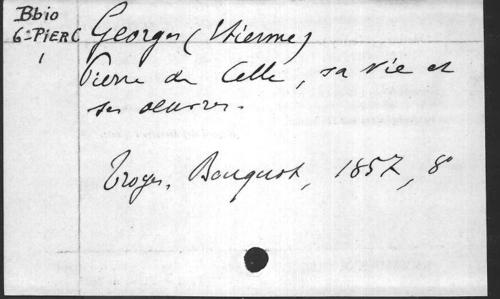 Bbio
6=PIERC
1
Georges (Etienne)
Pierre de Celle, sa vie et
ses œuvres.
Troyes, Bouquot, 1857, 8°